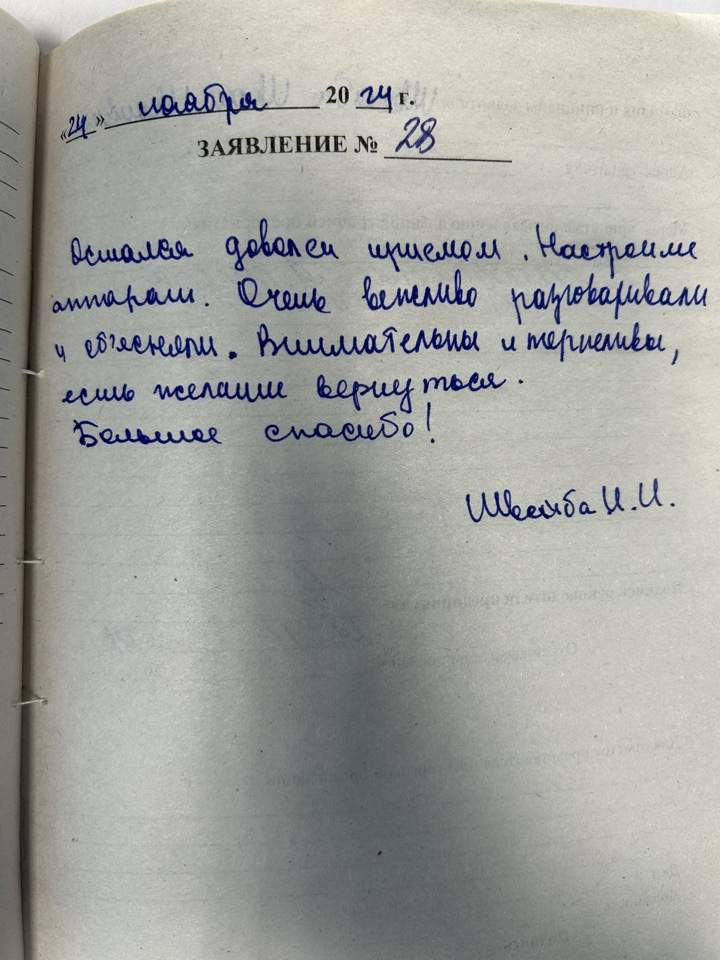 «24» ноября 20 24 г.
ЗАЯВЛЕНИЕ № 28
Остался доволен приемом. Настроили
аппарат. Очень вежливо разговаривали
и объясняли. Внимательны и терпеливы,
есть желание вернуться.
Большое спасибо!
И.И.